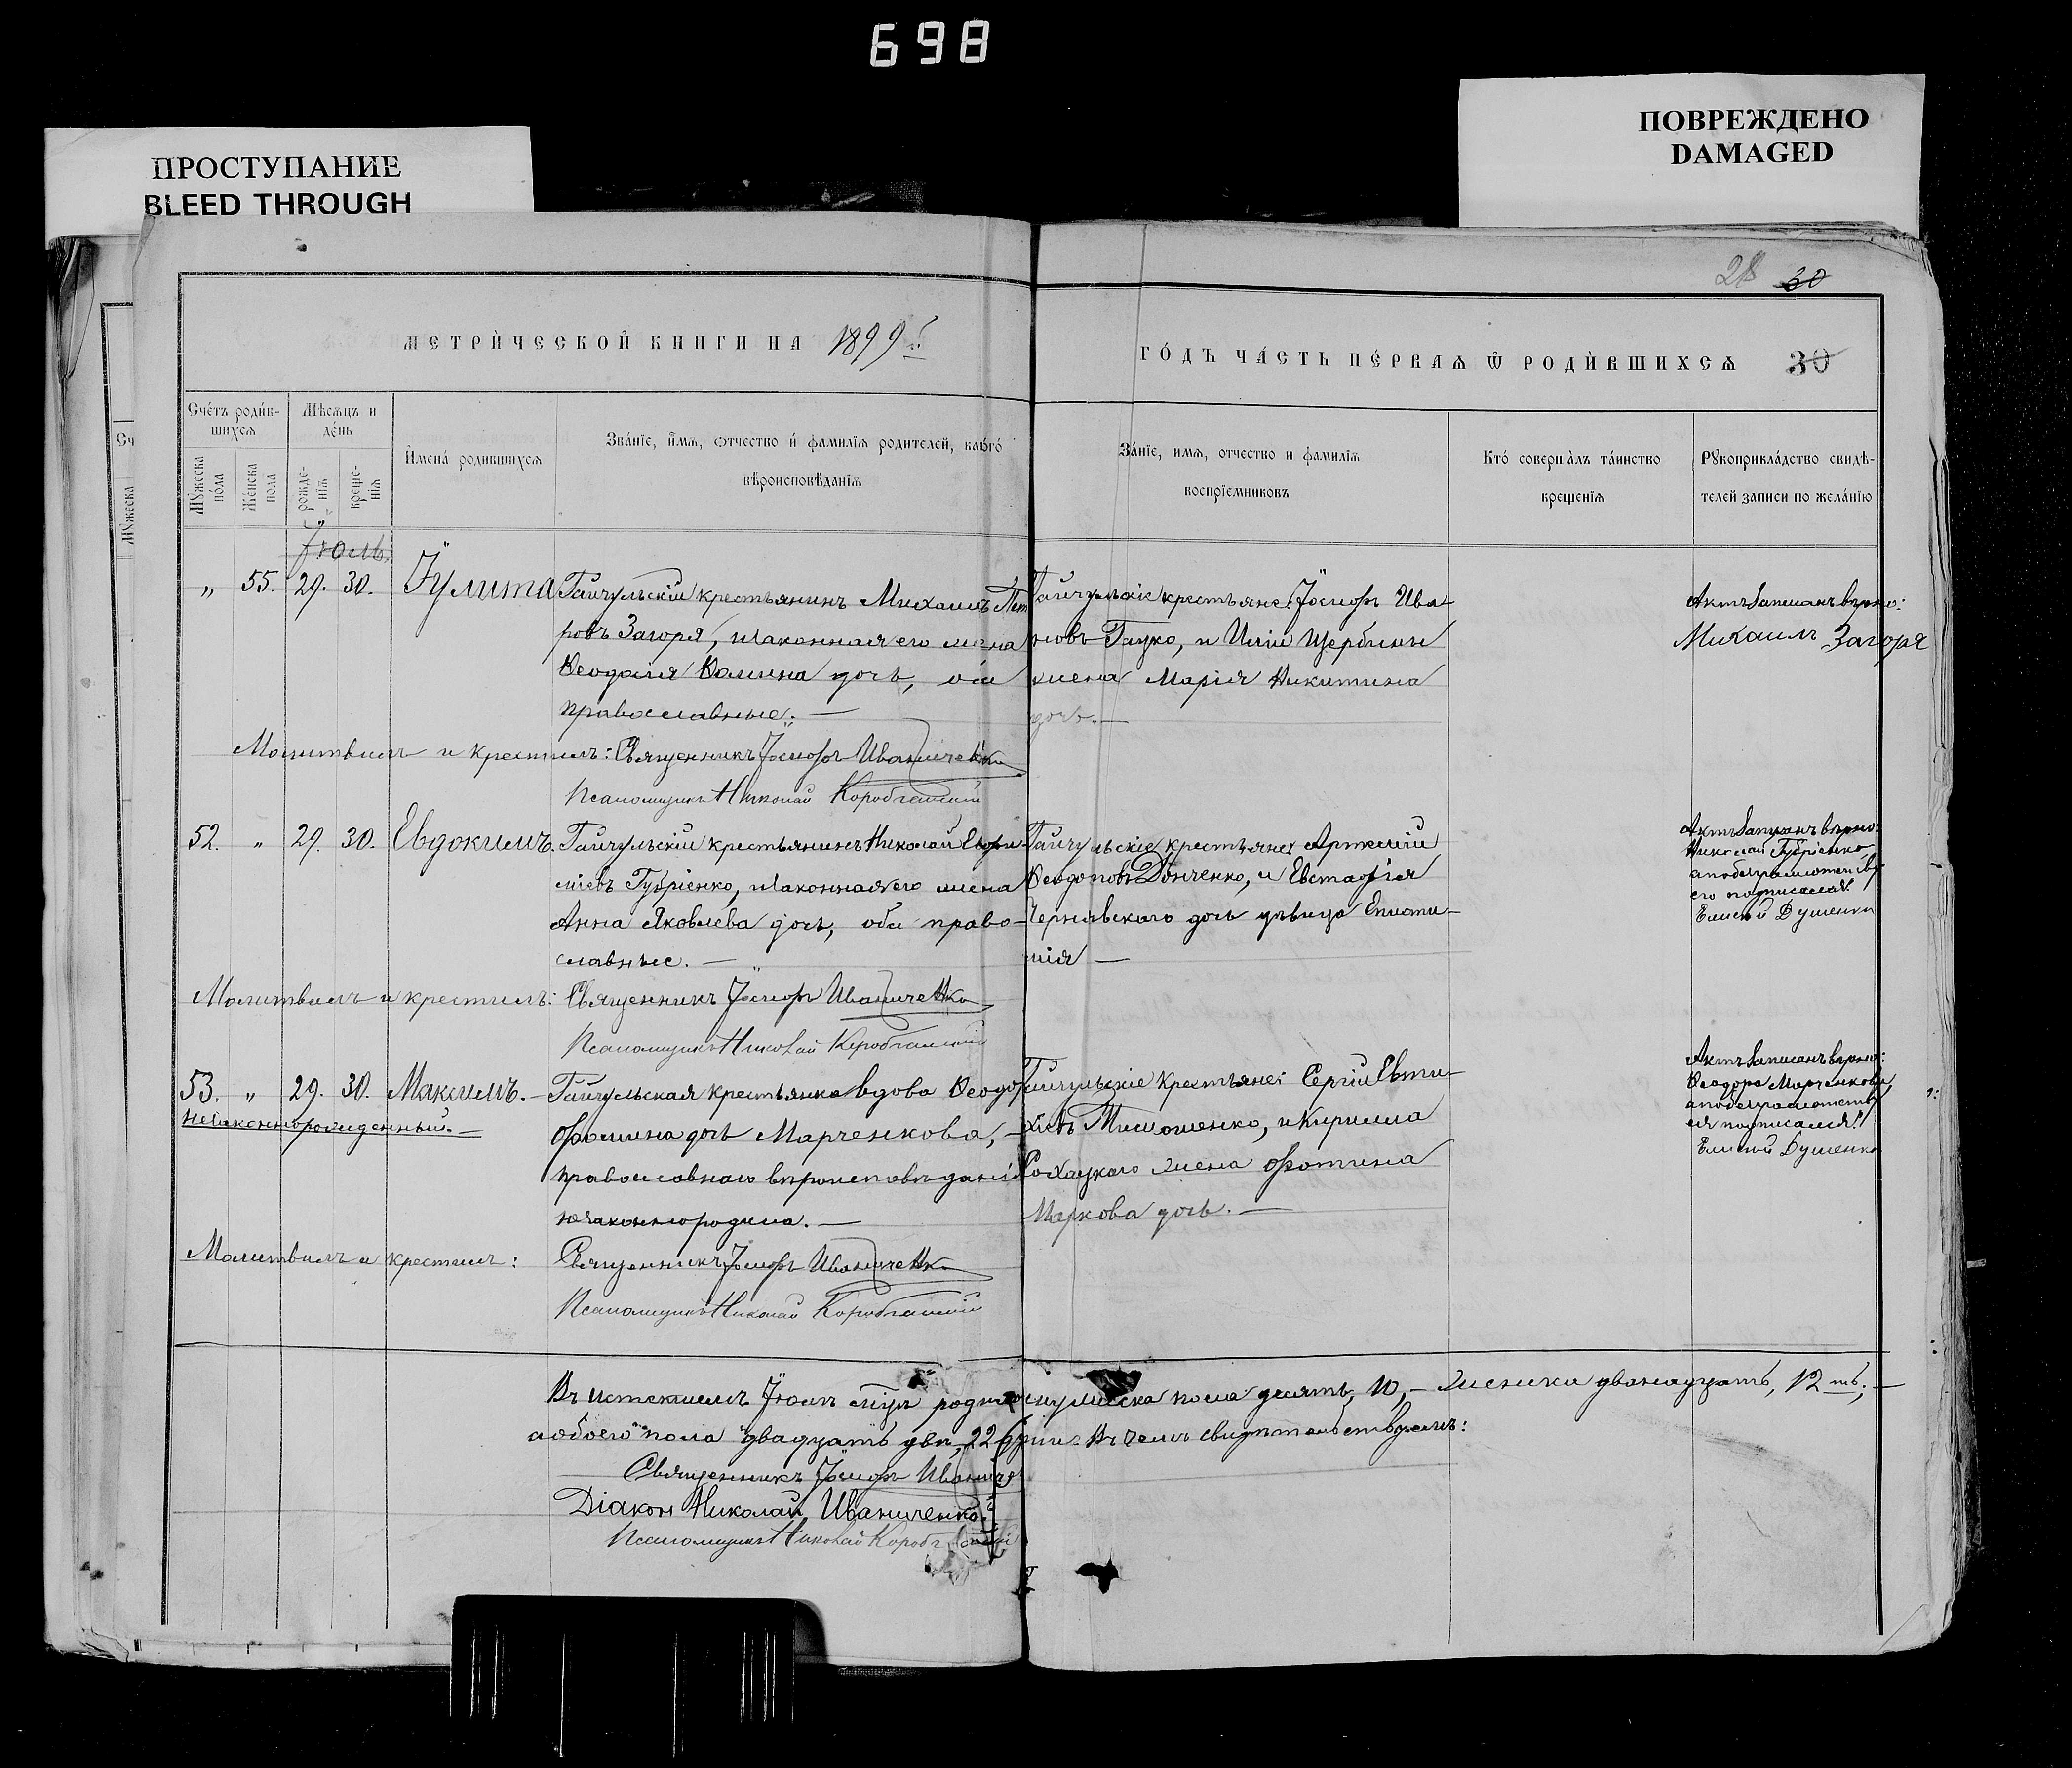 698
ПРОСТУПАНИЕ
BLEED THROUGH
ПОВРЕЖДЕНО
DAMAGED
28 30
МЕТРИ́ЧЕСКОЙ КНИГИ НА 1899 й
ГО́ДЪ ЧА́СТЬ ПЕ́РВАѦ Ѿ РОДИ́ВШИХСѦ 30
Сче́тъ роди́в-
шихсѧ
Мѣсѧцъ и
де́нь
И́мена́ родившихсѧ
Зва́нїе, и́мѧ, ѻтчество и́ фамилїѧ родителей, како́го́
вѣроисповѣ́данїѧ
Мꙋжеска
по́ла
Же́нска
пола
рожде-
нїѧ
креще-
нїѧ
За́нїе, имѧ, отчество и фамилїѧ
воспрїемниковъ
Кто́ соверша́лъ та́инство
крещенїѧ
Рꙋкоприкла́дство свидѣ-
телей записи по жела́нїю
Іюль
„ 55. 29. 30. Іулита
Гайчульскій крестьянинъ Михаилъ Пет
ровъ Загоря, и законная его жена
Ѳеодосія Ѳомина дочь, оба
православные. —
Гайчульскіе крестьяне: Іосифъ Ива
новъ Гацко, и Иліи Щербины
жена Марія Никитина
дочь. —
Актъ записанъ вѣрно:
Михаилъ Загоря
Молитвилъ и крестилъ: Священникъ Іосифъ Иваниченко
Псаломщикъ Николай
52. „ 29. 30. Евдокимъ.
Гайчульскій крестьянинъ Николай Евфи-
міевъ Губріенко, и законная его жена
Анна Яковлева дочь, оба право-
славные. —
Гайчульскіе крестьяне: Артемій
Донченко, и Евстафія
Чернявскаго дочь дѣвица Еписти-
мія —
Актъ записанъ вѣрно:
Николай Губріенко
а по безграмотству
его подписался:
Елисей Душенко
Молитвилъ и крестилъ: Священникъ Іосифъ Иваниченко
Псаломщикъ Николай
53. „ 29. 30. Максимъ. —
Незаконнорожденный. —
Гайчульская крестьянка вдова Ѳеодора
дочь Марченкова, —
православнаго вѣроисповѣданія
незаконнородила. —
Гайчульскіе крестьяне: Сергій Евти-
хіевъ Тимошенко, и Кирилла
жена Фотина
Маркова дочь. —
Актъ записанъ вѣрно:
Ѳеодора Марченкова,
а по безграмотству
ея подписался:
Елисей Душенко
Молитвилъ и крестилъ: Священникъ Іосифъ Иваниченко
Псаломщикъ Николай
Въ истекшемъ Іюлѣ мужеска пола десять, 10, — женска двѣнадцать, 12 ть; —
а обоего пола двадцать два, 22 Въ чемъ свидѣтельствуемъ:
Священникъ Іосифъ
Діаконъ Николай Иваниченко
Псаломщикъ Николай